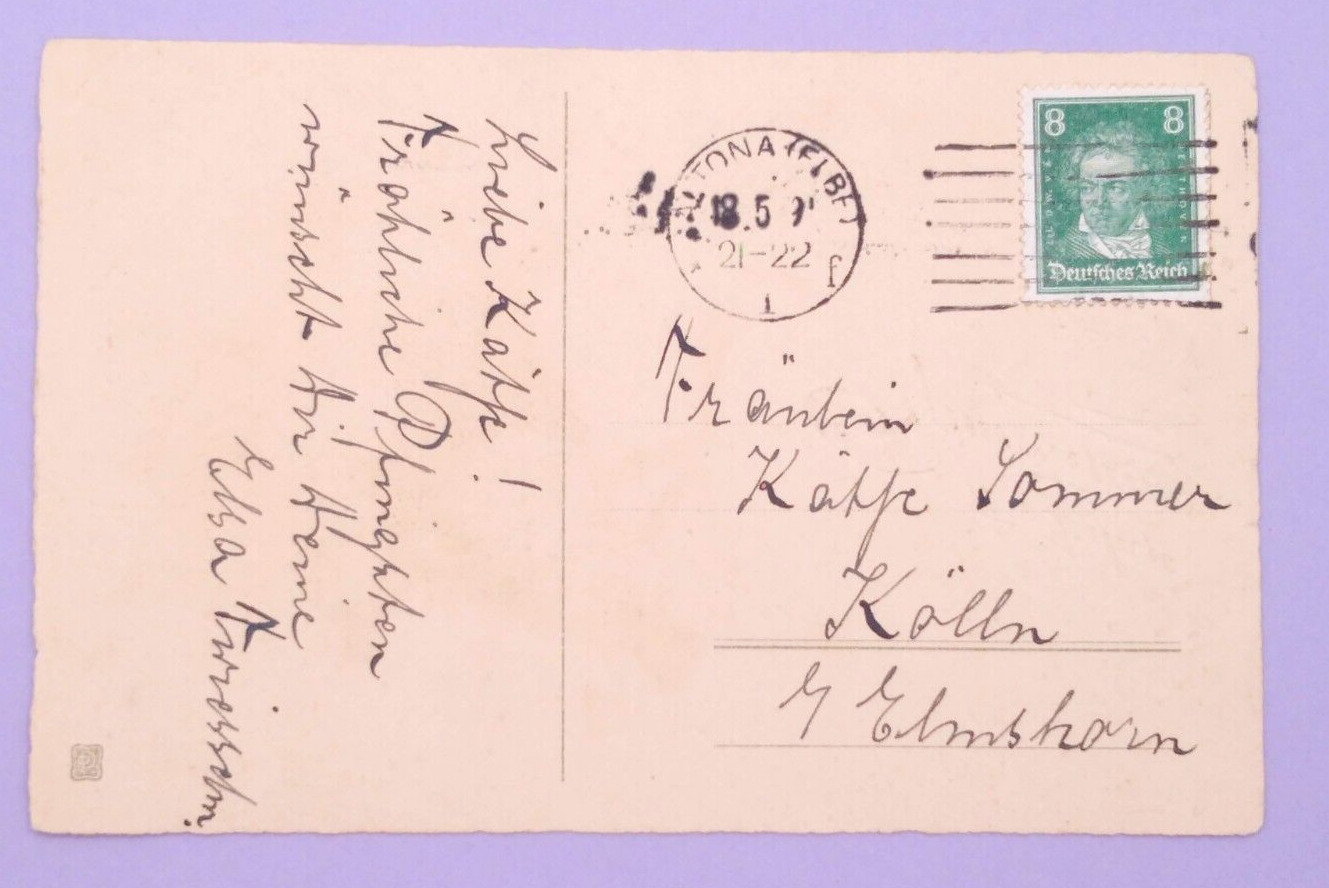 Liebe Käthe!
Fröhliche Pfingsten
wünscht dir deine
Elsa
ALTONA (ELBE)
18.5
21-22
1 f
8 8
Deutsches Reich
Fräulein
Käthe Sommer
Kölln
b/ Elmshorn